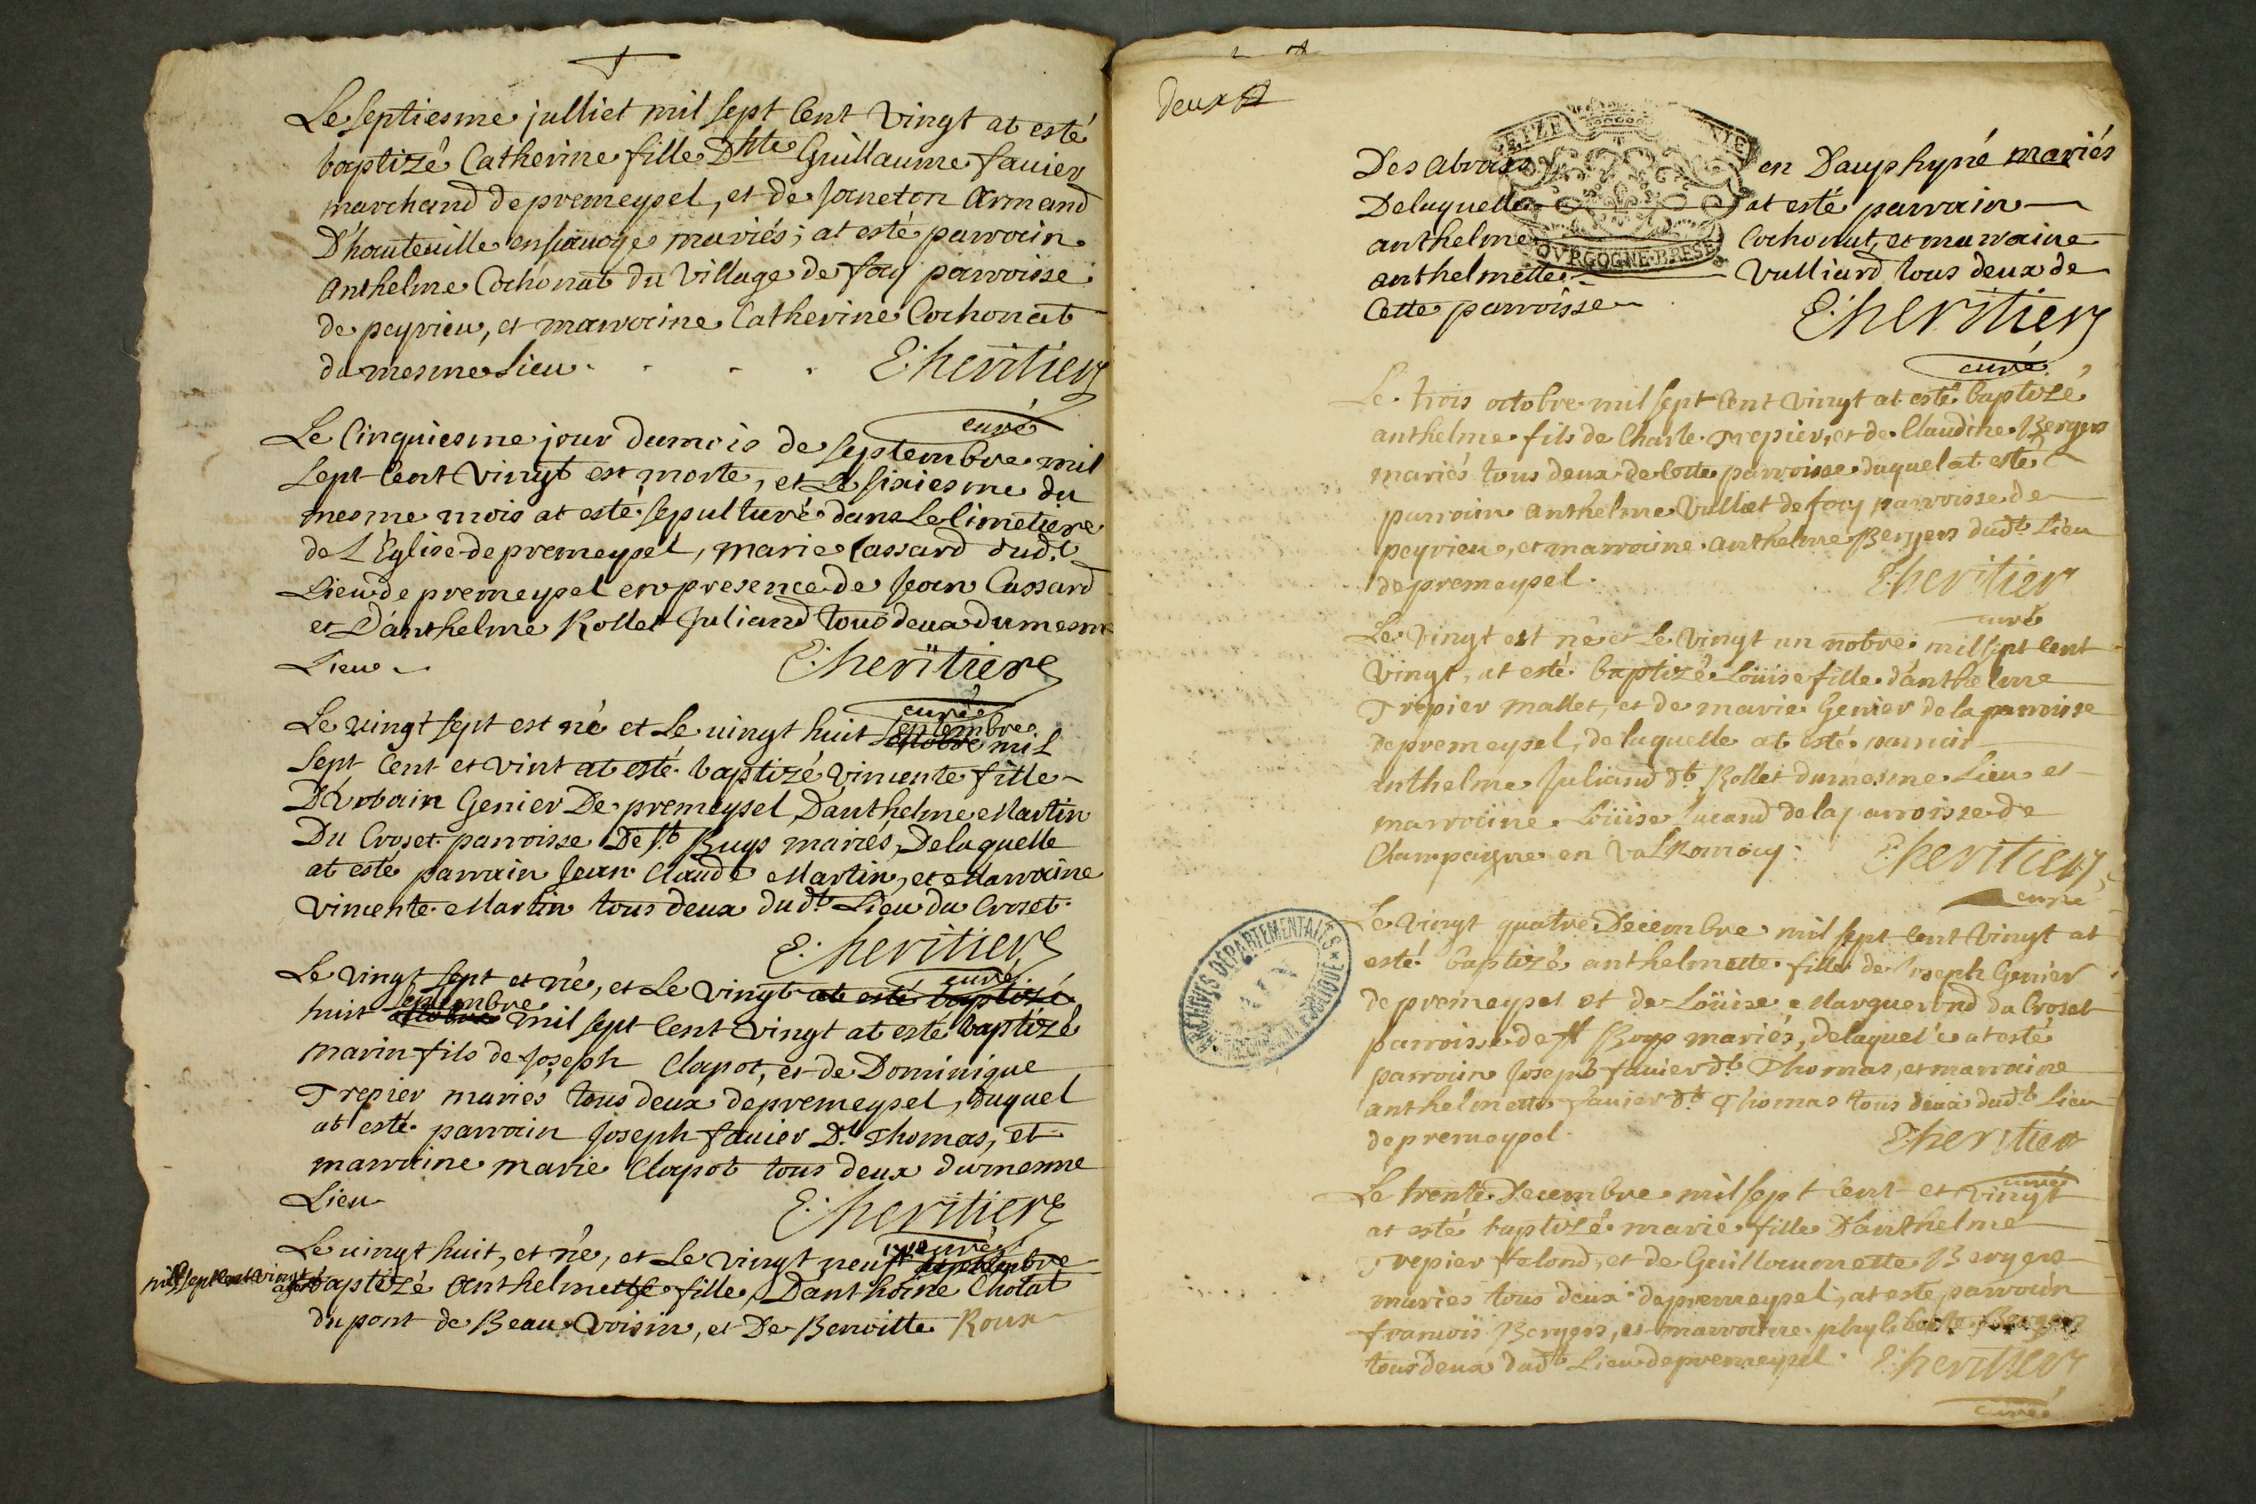 Le septiesme julliet mil sept Cent Vingt at esté
baptizé Catherine fille Dhte Guillaume favier
marchand de premeysel, et de Janeton Armand
D'hauteuille en sauoye mariés; at esté parroin
Anthelme Cochonat du Village de fay parroisse
de peyrieu, et marroine Catherine Cochonat
du mesme Lieu
E: heritier
curé
Le Cinquiesme jour du mois de Septembre mil
Sept Cent Vingt est morte, et Le sixiesme du
mesme mois at esté sepulturé dans Le Cimetiere
de L'Eglise de premeysel, marie Cassard dudt
Lieu de premeysel en presence de Jean Cassard
et D'anthelme Rollet Juliand tous deux du mesme
Lieu
E: heritier
curé
Le vingt sept est né et Le vingt huit septembre mil
Sept Cent et vint at esté baptizé Vincente fille
D'Urbain Genier De premeysel D'anthelme Martin
Du Croset parroisse De st Buys mariés, De laquelle
at esté parrain Jean Claude Martin, et Marroine
Vincente Martin tous deux dudt Lieu du Croset
E: heritier
curé
Le vingt sept et né, et Le vingt at esté baptizé
huit septembre mil sept Cent vingt at esté baptizé
Marin fils de Joseph Clapot, et de Dominique
Trepier mariés tous deux de premeysel, duquel
at esté parrain Joseph favier Dt Thomas, et
marraine marie Clapot tous deux du mesme
Lieu
E: heritier
curé
Le vingt huit, et né, et Le vingt neuf septembre
mil sept cent vingt at esté baptizé Anthelmette fille D'anthoine Cholat
du pont de Beau Voisin, et De Benoitte Roux
deux
Des abrais en Dauphyné mariés
De laquelle at esté parrain
anthelme Cochonat, et marraine
anthelmette Vulliard tous deux de
Cette parroisse
E: heritier
curé
Le trois octobre mil sept Cent vingt at esté baptizé
anthelme fils de Charle Trepier, et de Claudine Bergers
mariés tous deux de Cette parroisse duquel at esté
parroin anthelme Vulliet de fay parroisse de
peyrieu, et marroine anthelme Bergers dudt Lieu
de premeysel
E: heritier
curé
Le Vingt est né et Le Vingt un nobre mil sept Cent
Vingt, at esté baptizé Loüise fille d'anthelme
Trepier Mallet, et de marie Genier de la parroisse
de premeysel, de laquelle at esté parrain
anthelme Juliand dt Rollet du mesme Lieu et
marroine Loüise Jucand de la parroisse de
Champaigne en Valromay
E: heritier
curé
Le vingt quatre Decembre mil sept Cent Vingt at
esté baptizé anthelmette fille de Joseph Genier
de premeysel et de Loüise Marguerond du Croset
parroisse de st Boys mariés, de laquele at esté
parroin Joseph favier dt Thomas, et marraine
anthelmette favier dt Thomas tous deux dudt Lieu
de premeysel
E: heritier
curé
Le trente Decembre mil sept Cent et vingt
at esté baptizé marie fille D'anthelme
Trepier felond, et de Guillaumette Bergers
mariés tous deux de premeysel, at esté parroin
francois Bergers, et marroine phyliberte Bergers
tous deux dudt Lieu de premeysel
E: heritier
curé
SEIZE
BOVRGOGNE·BRESSE
ARCHIVES DEPARTEMENTALES
AIN